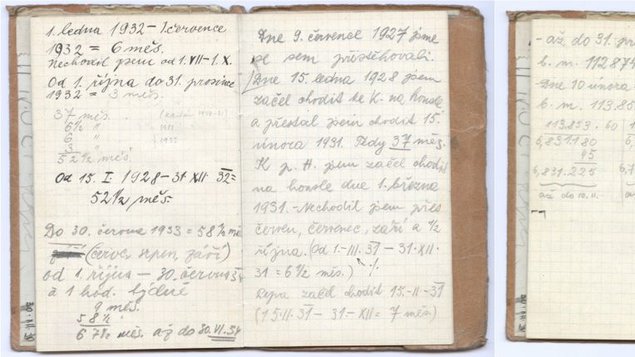 1. ledna 1932 – 1. července
1932 = 6 měs.
Nechodil jsem od 1.VII – 1.X.
Od 1. října do 31. prosince
1932 = 3 měs.
37 měs.
6½ "
6 "
3 "
52½ měs.
Od 15. I. 1928 – 31 XII 32 =
52½ měs.
Do 30. června 1933 = 58½ měs
(červ., srpen, září)
od 1. října – 30. června 34
a 1 hod. týdně
9 měs.
58½
67½ měs. až do 30.VI.34
Dne 9. července 1927 jsme
se sem přistěhovali.
Dne 15. ledna 1928 jsem
začal chodit ke K. na housle
a přestal jsem chodit 15.
února 1931. Tedy 37 měs.
K p. H. jsem začal chodit
na housle dne 1. března
1931. – Nechodil jsem přes
červen, červenec, září a ½
října. (Od 1.-III. 31 – 31.XII.
31 = 6½ měs.)
začal chodit 15.-II-31
(15.II.31 – 31-XII = 7 měs)
- až do 31.
b. m. 112.87
Dne 10 února
b. m. 113.85
113.853 . 60
6,831180
45
6,831.225
až do 10.II.